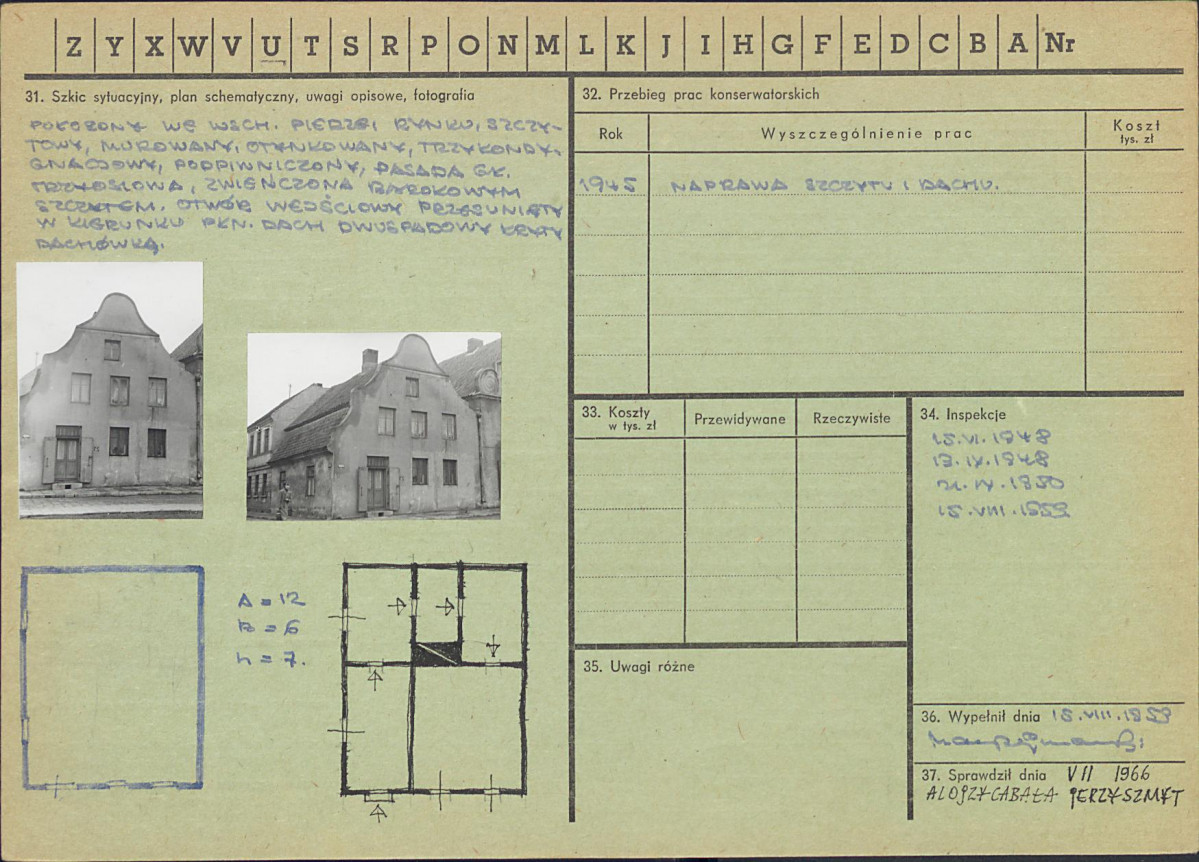 Z Y X W V U T S R P O N M L K J I H G F E D C B A Nr
31. Szkic sytuacyjny, plan schematyczny, uwagi opisowe, fotografia
POŁOŻONY WE WSCH. PIERZEI RYNKU, SZCZY-
TOWY, MUROWANY, OTYNKOWANY, TRZYKONDY-
GNACJOWY, PODPIWNICZONY, FASADA GŁ.
TRZYOSIOWA, ZWIEŃCZONA BAROKOWYM
SZCZYTEM. OTWÓR WEJŚCIOWY PRZESUNIĘTY
W KIERUNKU PŁN. DACH DWUSPADOWY KRYTY
DACHÓWKĄ.
A = 12
B = 6
h = 7.
32. Przebieg prac konserwatorskich
Rok Wyszczególnienie prac Koszt
tys. zł
1945 NAPRAWA SZCZYTU I DACHU.
33. Koszty
w tys. zł
Przewidywane Rzeczywiste
34. Inspekcje
15.VI.1948
13.IX.1948
21.IV.1950
15.VIII.1959
35. Uwagi różne
36. Wypełnił dnia 15.VIII.1959
37. Sprawdził dnia VII 1966
ALOJZY CABAŁA JERZY SZMYT